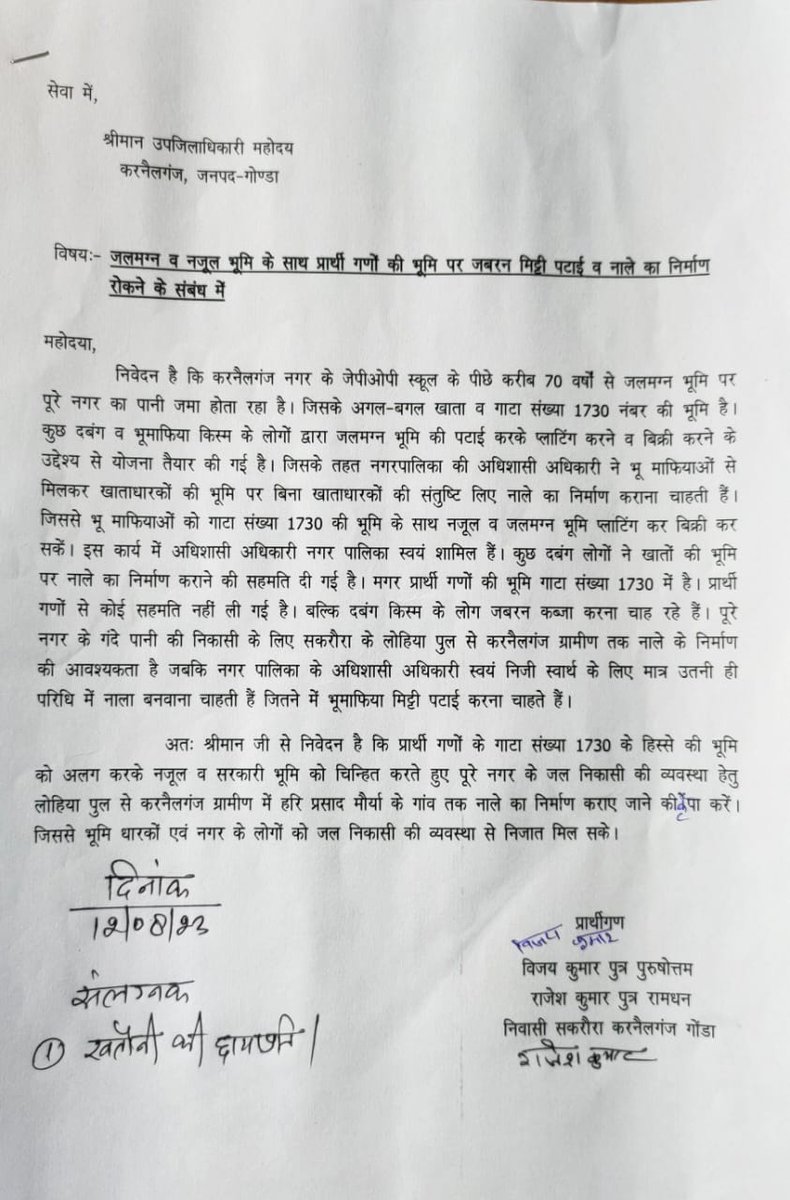 सेवा में,
श्रीमान उपजिलाधिकारी महोदय
करनैलगंज, जनपद-गोण्डा
विषयः- जलमग्न व नजूल भूमि के साथ प्रार्थी गणों की भूमि पर जबरन मिट्टी पटाई व नाले का निर्माण
रोकने के संबंध में
महोदया,
निवेदन है कि करनैलगंज नगर के जेपीओपी स्कूल के पीछे करीब 70 वर्षों से जलमग्न भूमि पर
पूरे नगर का पानी जमा होता रहा है। जिसके अगल-बगल खाता व गाटा संख्या 1730 नंबर की भूमि है।
कुछ दबंग व भूमाफिया किस्म के लोगों द्वारा जलमग्न भूमि की पटाई करके प्लाटिंग करने व बिक्री करने के
उद्देश्य से योजना तैयार की गई है। जिसके तहत नगरपालिका की अधिशासी अधिकारी ने भू माफियाओं से
मिलकर खाताधारकों की भूमि पर बिना खाताधारकों की संतुष्टि लिए नाले का निर्माण कराना चाहती हैं।
जिससे भू माफियाओं को गाटा संख्या 1730 की भूमि के साथ नजूल व जलमग्न भूमि प्लाटिंग कर बिक्री कर
सकें। इस कार्य में अधिशासी अधिकारी नगर पालिका स्वयं शामिल हैं। कुछ दबंग लोगों ने खातों की भूमि
पर नाले का निर्माण कराने की सहमति दी गई है। मगर प्रार्थी गणों की भूमि गाटा संख्या 1730 में है। प्रार्थी
गणों से कोई सहमति नहीं ली गई है। बल्कि दबंग किस्म के लोग जबरन कब्जा करना चाह रहे हैं। पूरे
नगर के गंदे पानी की निकासी के लिए सकरौरा के लोहिया पुल से करनैलगंज ग्रामीण तक नाले के निर्माण
की आवश्यकता है जबकि नगर पालिका के अधिशासी अधिकारी स्वयं निजी स्वार्थ के लिए मात्र उतनी ही
परिधि में नाला बनवाना चाहती हैं जितने में भूमाफिया मिट्टी पटाई करना चाहते हैं।
अतः श्रीमान जी से निवेदन है कि प्रार्थी गणों के गाटा संख्या 1730 के हिस्से की भूमि
को अलग करके नजूल व सरकारी भूमि को चिन्हित करते हुए पूरे नगर के जल निकासी की व्यवस्था हेतु
लोहिया पुल से करनैलगंज ग्रामीण में हरि प्रसाद मौर्या के गांव तक नाले का निर्माण कराए जाने की कृपा करें।
जिससे भूमि धारकों एवं नगर के लोगों को जल निकासी की व्यवस्था से निजात मिल सके।
दिनांक
12/08/23
संलग्नक
① खतौनी की छायाप्रति।
प्रार्थीगण
विजय कुमार
विजय कुमार पुत्र पुरुषोत्तम
राजेश कुमार पुत्र रामधन
निवासी सकरौरा करनैलगंज गोंडा
राजेश कुमार